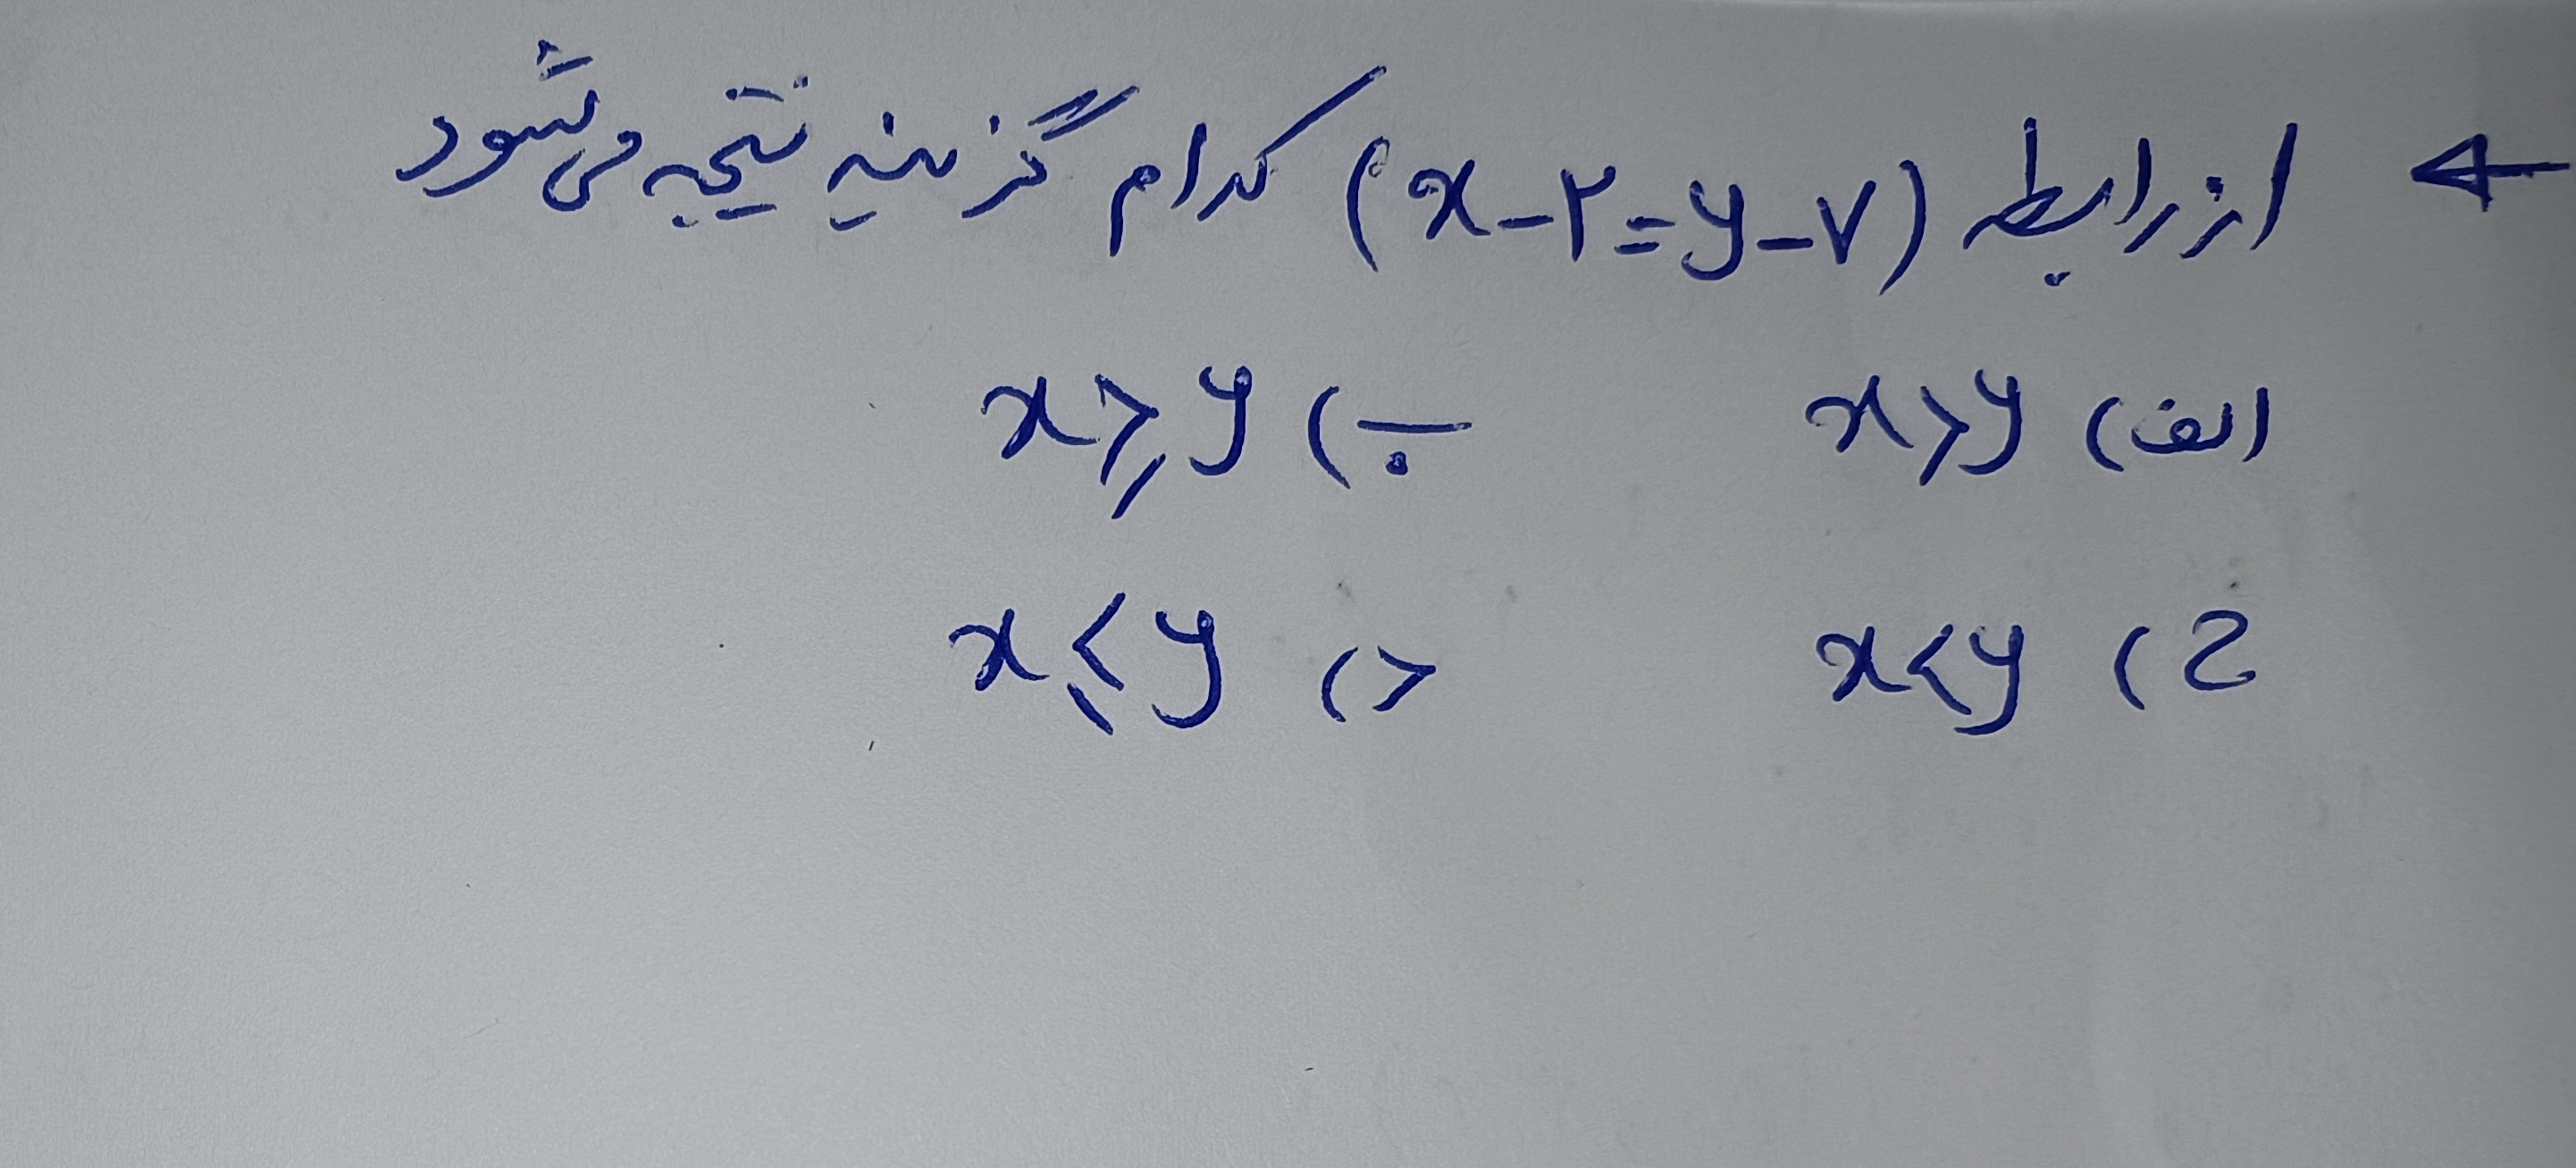 ← از رابطه (x-۲=y-۷) کدام گزینه نتیجه می‌شود
الف) x>y ب) x⩾y
ج) x<y د) x⩽y